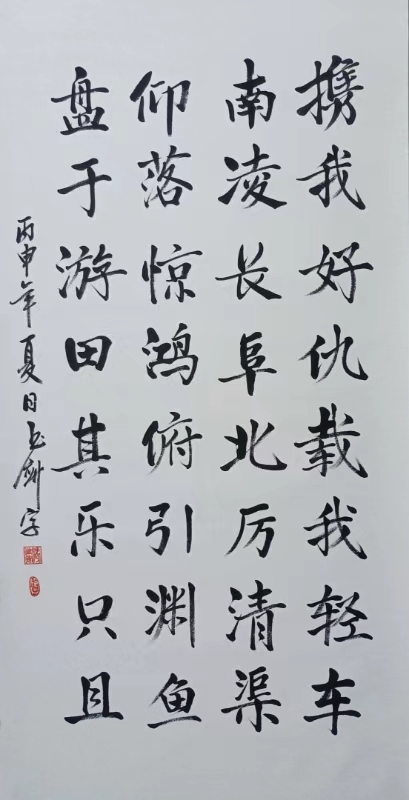 携我好仇载我轻车
南凌长阜北厉清渠
仰落惊鸿俯引渊鱼
盘于游田其乐只且
丙申年夏日 剑字